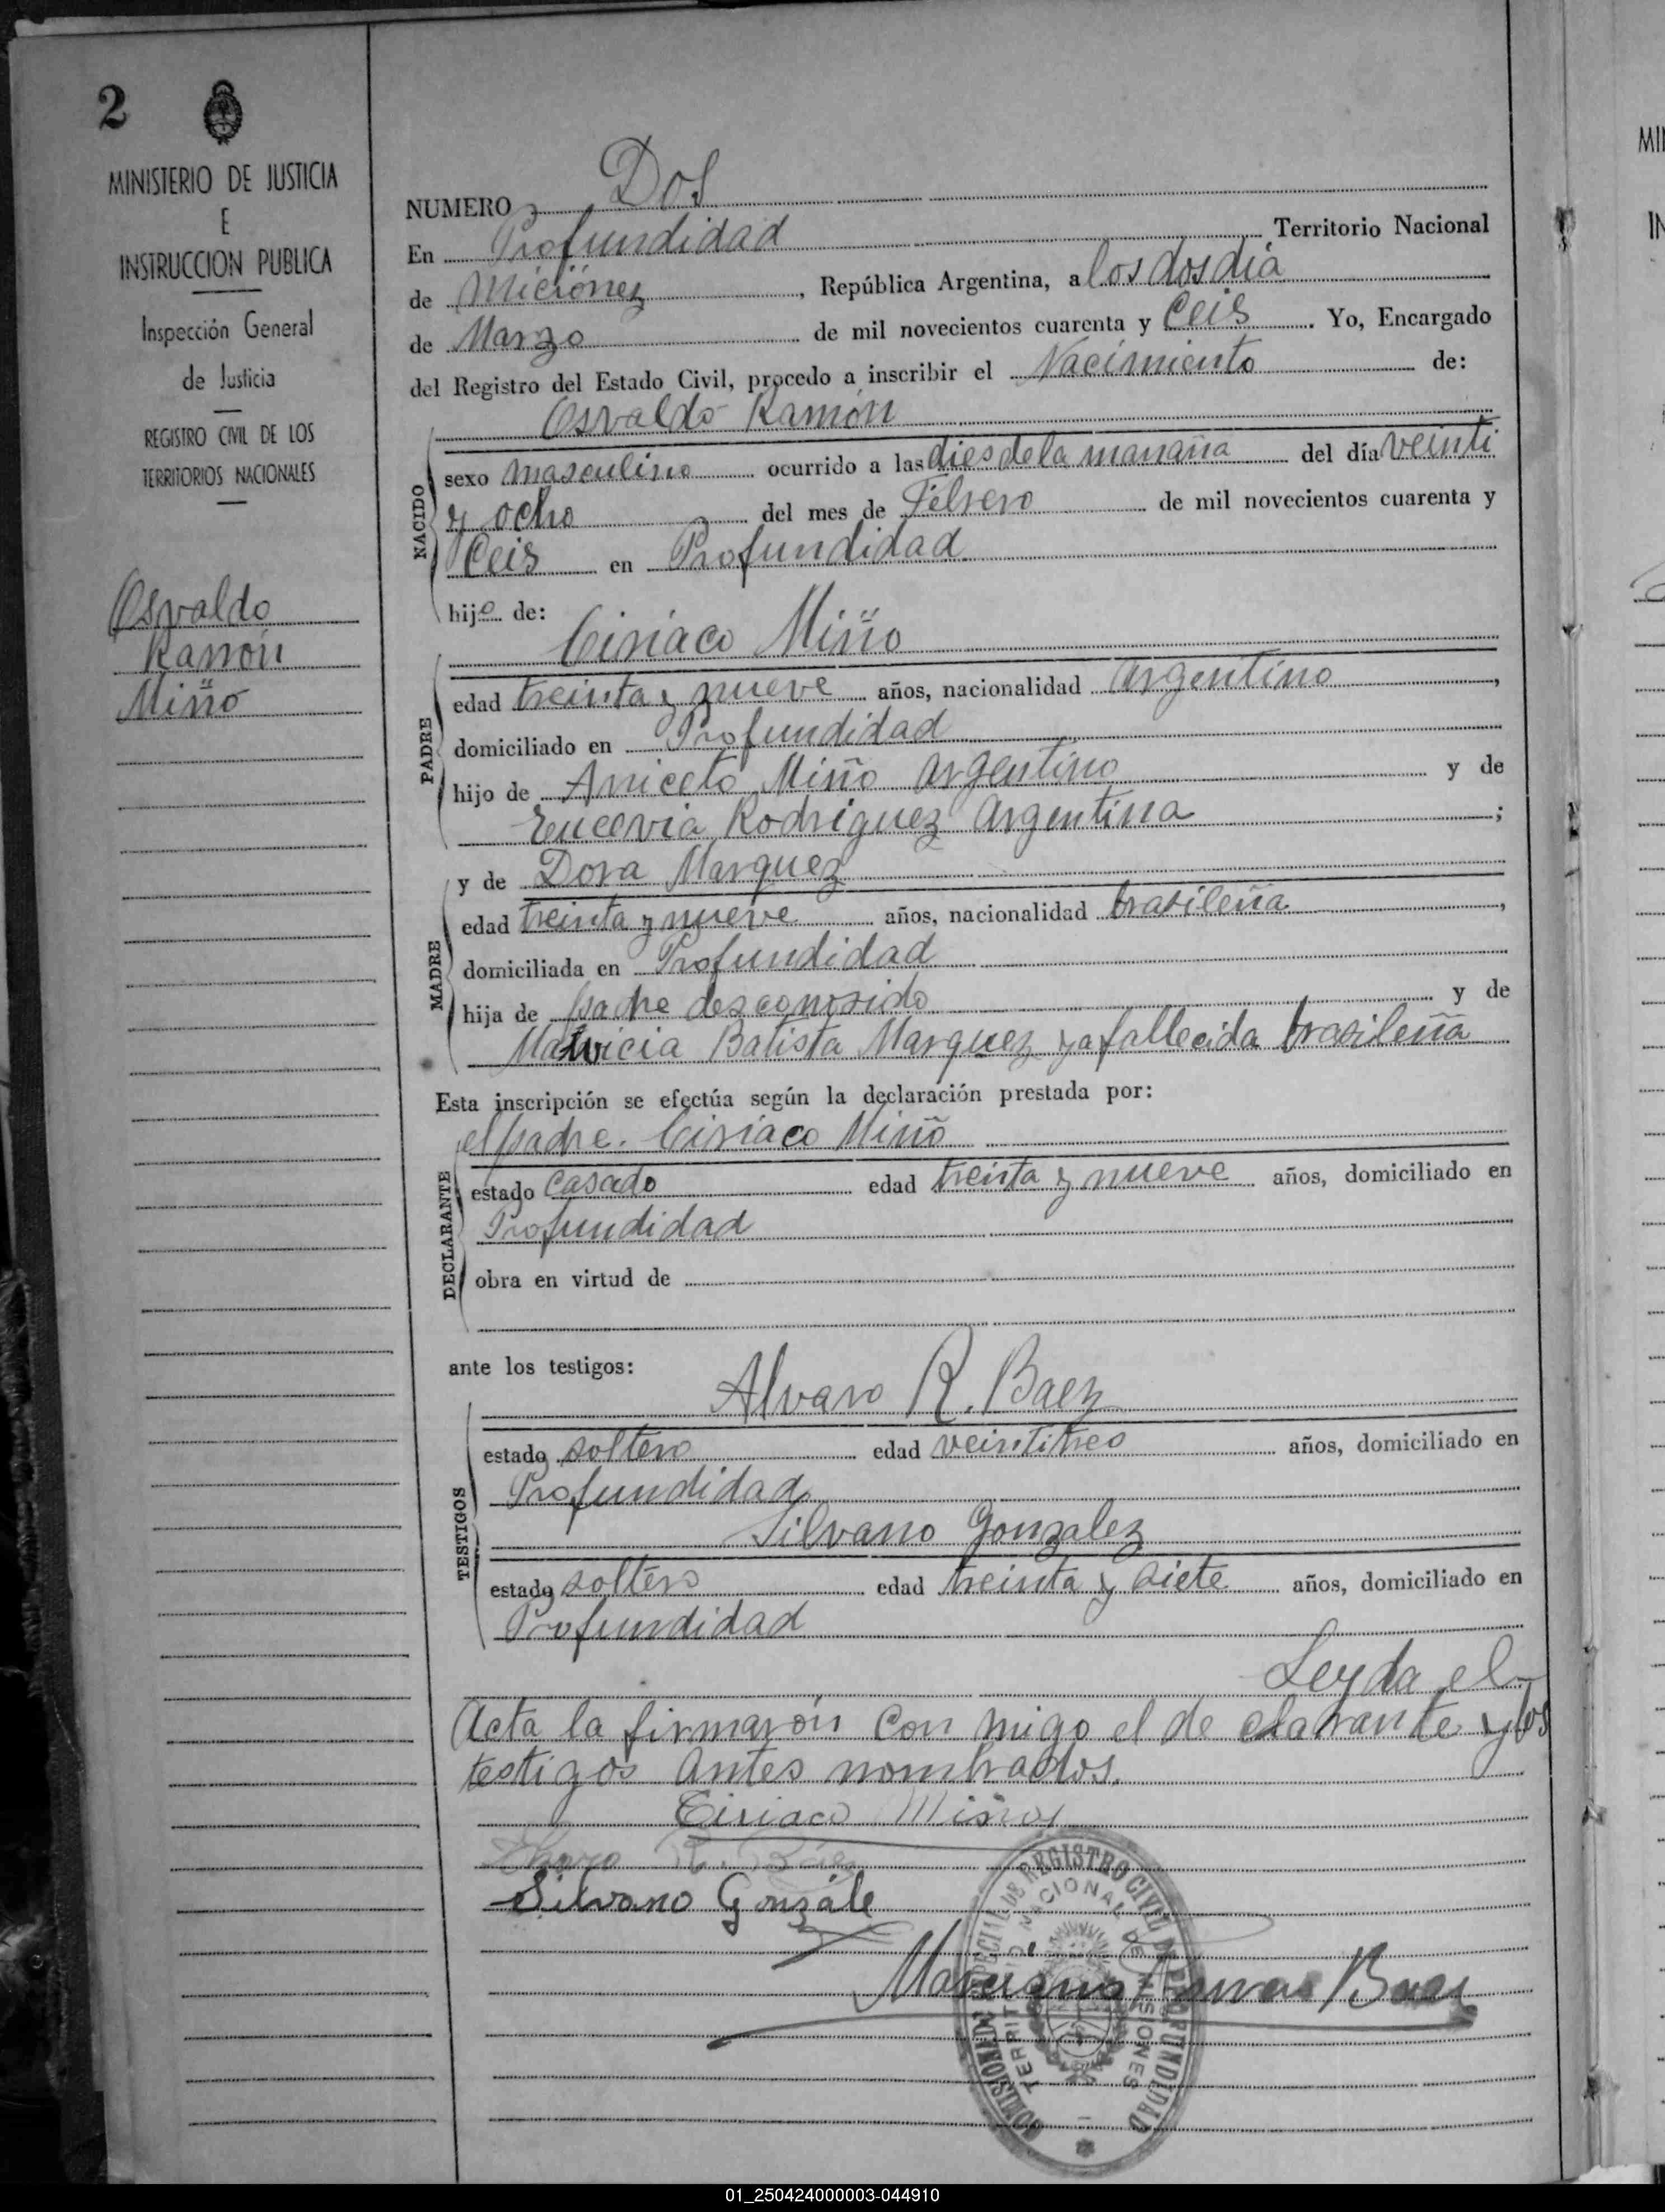 2
MINISTERIO DE JUSTICIA
E
INSTRUCCION PUBLICA
Inspección General
de Justicia
REGISTRO CIVIL DE LOS
TERRITORIOS NACIONALES
Osvaldo
Ramón
Miño
NUMERO Dos
En Profundidad Territorio Nacional
de Miciones, República Argentina, a los dos dia
de Marzo de mil novecientos cuarenta y Ceis. Yo, Encargado
del Registro del Estado Civil, procedo a inscribir el Nacimiento de:
Osvaldo Ramón
NACIDO
sexo masculino ocurrido a las dies de la mañana del día veinti
y ocho del mes de Febrero de mil novecientos cuarenta y
Ceis en Profundidad
hijo de:
Ciriaco Miño
PADRE
edad treinta y nueve años, nacionalidad argentino,
domiciliado en Profundidad
hijo de Aniceto Miño argentino y de
Eucevia Rodriguez argentina;
y de Dora Marquez
MADRE
edad treinta y nueve años, nacionalidad brasileña,
domiciliada en Profundidad
hija de padre desconosido y de
Batista Marquez ya fallecida brasileña
Esta inscripción se efectúa según la declaración prestada por:
el padre. Ciriaco Miño
DECLARANTE
estado casado edad treinta y nueve años, domiciliado en
Profundidad
obra en virtud de
ante los testigos:
Alvaro R. Baez
TESTIGOS
estado soltero edad veintitres años, domiciliado en
Profundidad
Silvano Gonzalez
estado soltero edad treinta y siete años, domiciliado en
Profundidad
Leyda el
Acta la firmarón con migo el de clarante y los
testigos antes nombrados.
Ciriaco Miño
Alvaro R. Báez
Silvano Gonzále
Baez
REGISTRO CIVIL DE PROFUNDIDAD
TERRITORIO NACIONAL DE MISIONES
MI
IN
01_250424000003-044910